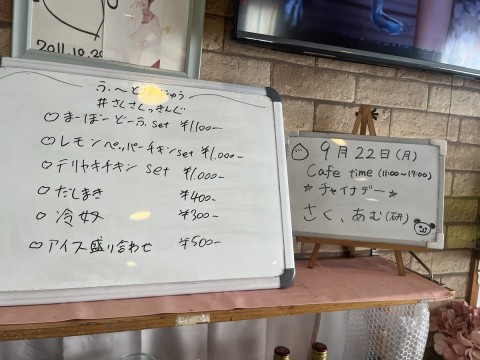 2011.10.20
ふーどめにゅう
#さくさくっきんぐ
○まーぼーどーふset ¥1,100-
○レモンペッパーチキンset ¥1,000-
○テリヤキチキンset ¥1,000-
○だしまき ¥400-
○冷奴 ¥300-
○アイス盛り合わせ ¥500-
9月22日(月)
Cafe time (11:00~17:00)
☆チャイナデー☆
さく、あむ(研)